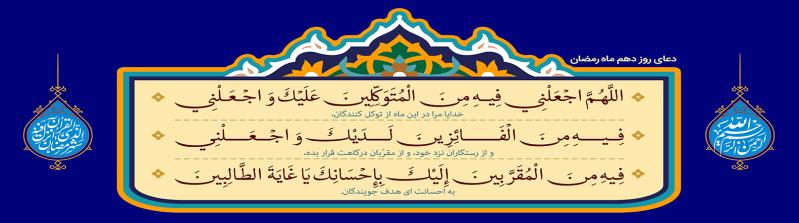 دعای روز دهم ماه رمضان
اللَّهُمَّ اجْعَلْنِي فِيهِ مِنَ الْمُتَوَكِّلِينَ عَلَيْكَ وَ اجْعَلْنِي
خدایا مرا در این ماه از توکل کنندگان،
فِيهِ مِنَ الْفَائِزِينَ لَدَيْكَ وَ اجْعَلْنِي
و از رستگاران نزد خود، و از مقرّبان درگاهت قرار بده،
فِيهِ مِنَ الْمُقَرَّبِينَ إِلَيْكَ بِإِحْسَانِكَ يَا غَايَةَ الطَّالِبِينَ
به احسانت ای هدف جویندگان.